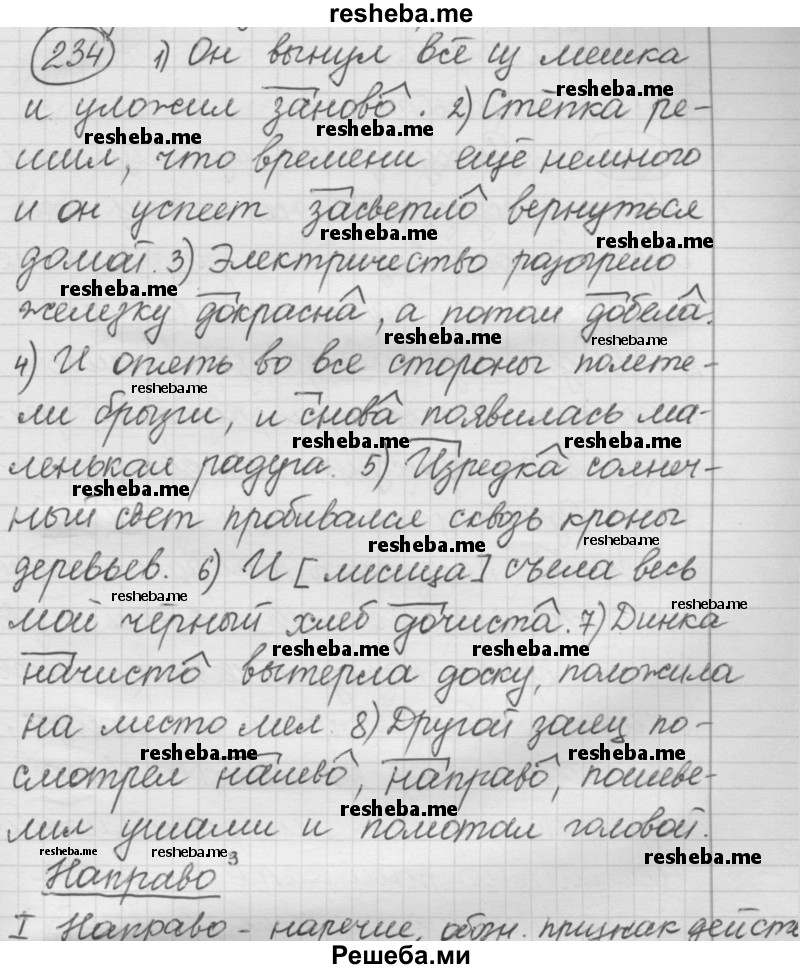 resheba.me
234 1) Он вынул всё из мешка
и уложил заново. 2) Стёпка ре-
resheba.me resheba.me resheba.me
шил, что времени ещё немного
и он успеет засветло вернуться
resheba.me resheba.me
домой. 3) Электричество разогрело
resheba.me
железку докрасна, а потом добела.
resheba.me resheba.me
4) И опять во все стороны полете-
resheba.me
ли брызги, и снова появилась ма-
resheba.me resheba.me
ленькая радуга. 5) Изредка солнеч-
resheba.me
ный свет пробивался сквозь кроны
resheba.me resheba.me
деревьев. 6) И [лисица] съела весь
resheba.me resheba.me
мой чёрный хлеб дочиста. 7) Динка
resheba.me resheba.me
начисто вытерла доску, положила
на место мел. 8) Другой заяц по-
resheba.me resheba.me
смотрел налево, направо, пошеве-
resheba.me
лил ушами и помотал головой.
resheba.me resheba.me resheba.me
Направо³
I Направо - наречие, обозн. признак действ
Решеба.ми